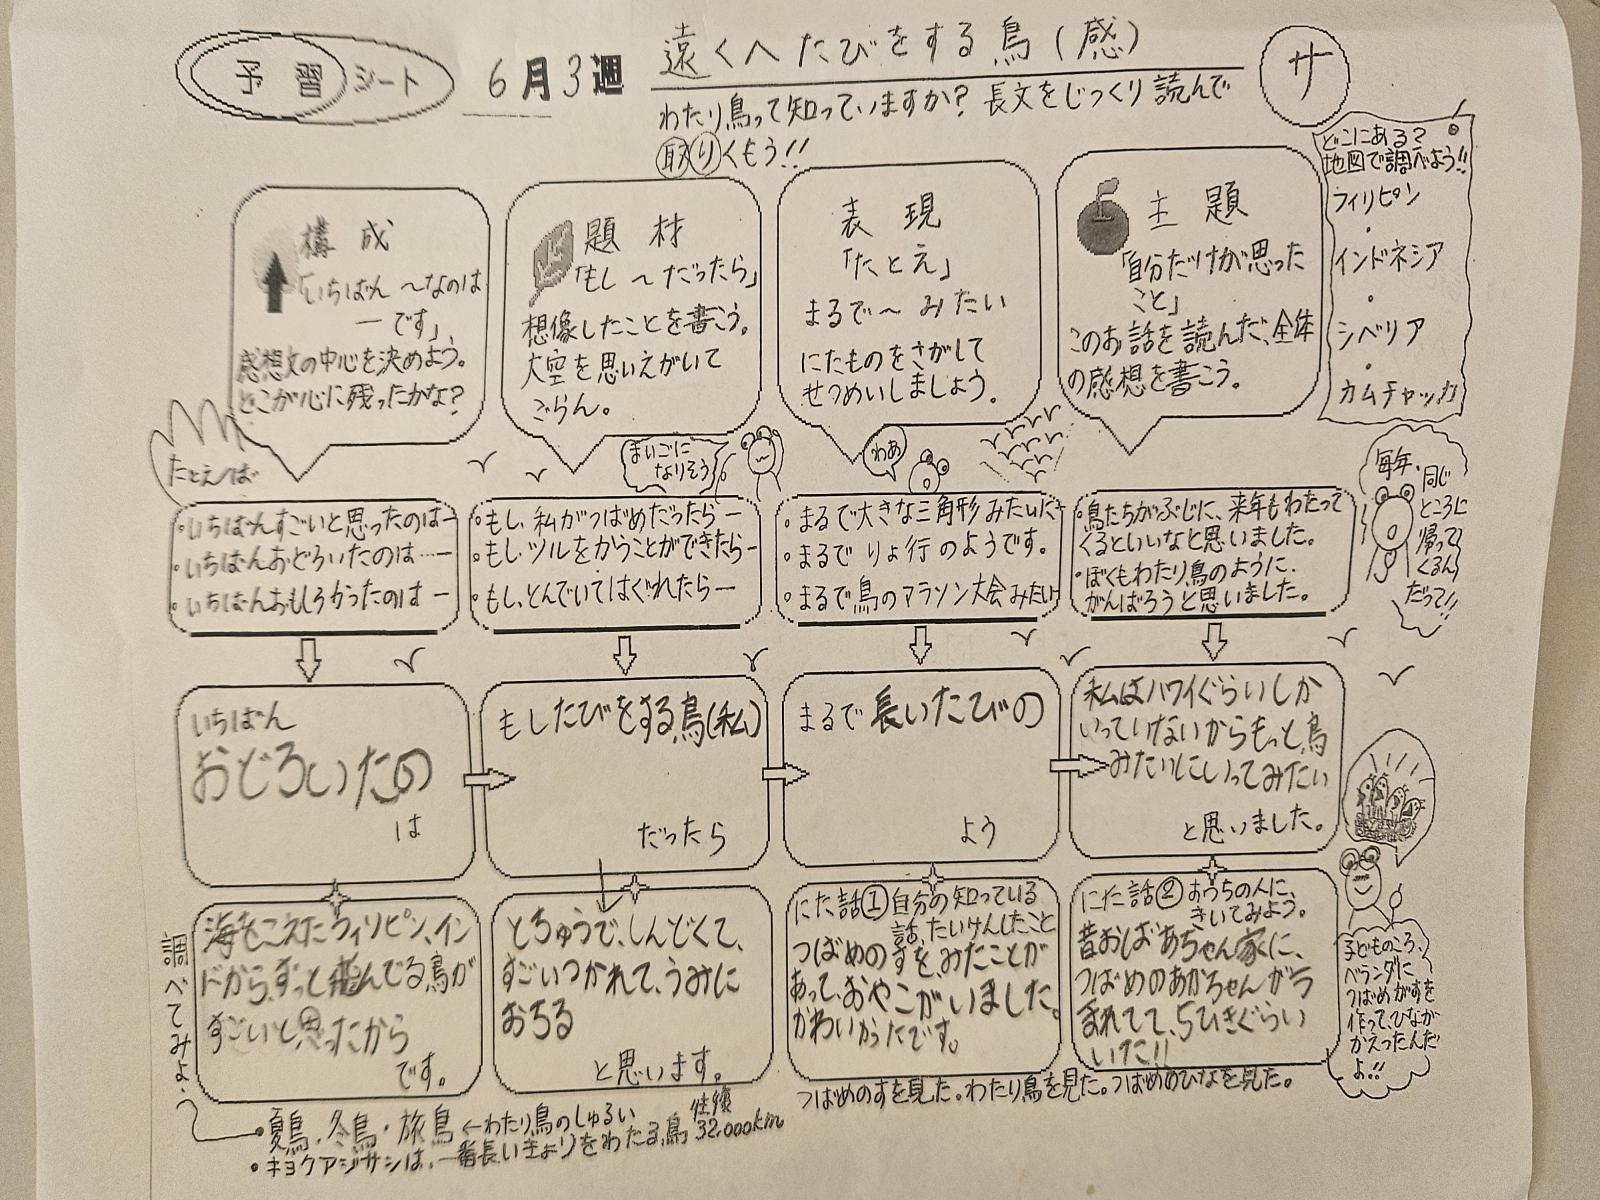 予習シート
6月3週
遠くへたびをする鳥(感)
サ
わたり鳥って知っていますか?長文をじっくり読んで
取りくもう!!
構成
「いちばん〜なのは
ーです」
感想文の中心を決めよう。
どこが心に残ったかな?
題材
「もし〜だったら」
想像したことを書こう。
大空を思いえがいて
ごらん。
表現
「たとえ」
まるで〜みたい
にたものをさがして
せつめいしましょう。
主題
「自分だけが思った
こと」
このお話を読んだ、全体
の感想を書こう。
どこにある?
地図で調べよう!!
フィリピン
・
インドネシア
・
シベリア
・
カムチャッカ
たとえば
まいごに
なりそう
わあ
・いちばんすごいと思ったのはー
・いちばんおどろいたのは…ー
・いちばんおもしろかったのはー
・もし、私がつばめだったらー
・もしツルをかうことができたらー
・もし、とんでいてはぐれたらー
・まるで大きな三角形みたいに
・まるでりょ行のようです。
・まるで鳥のマラソン大会みたい
・鳥たちがぶじに、来年もわたって
くるといいなと思いました。
・ぼくもわたり鳥のように、
がんばろうと思いました。
毎年、同じ
ところに
帰って
くるん
だって!!
いちばん
おどろいたの
は
もしたびをする鳥(私)
だったら
まるで長いたびの
よう
私はハワイぐらいしか
いっていないからもっと鳥
みたいにいってみたい
と思いました。
調べてみよ。
海をこえたフィソピン、イン
ドから、ずっと飛んでる鳥が
すごいと思ったから
です。
とちゅうで、しんどくて、
すごいつかれて、うみに
おちる
と思います。
にた話①自分の知っている
話、たいけんしたこと
つばめのすを、みたことが
あって、おやこがいました。
かわいかったです。
にた話②おうちの人に、
きいてみよう。
昔おばあちゃん家に、
つばめのあかちゃんがう
まれてて、5ひきぐらい
いた!!
子どものころ、
ベランダに
つばめがすを
作って、ひなが
かえったんだ
よ!!
つばめのすを見た。わたり鳥を見た。つばめのひなを見た。
・夏鳥、冬鳥・旅鳥←わたり鳥のしゅるい
・キョクアジサシは、一番長いきょりをわたる鳥 往復32,000km